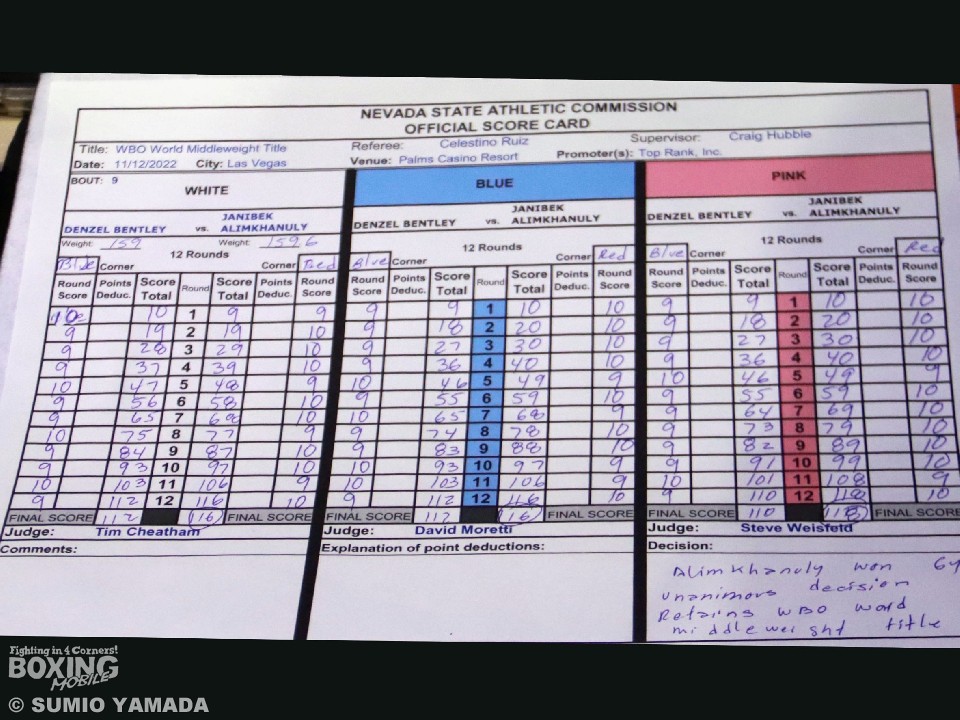 NEVADA STATE ATHLETIC COMMISSION
OFFICIAL SCORE CARD
Title: WBO World Middleweight Title Referee: Celestino Ruiz Supervisor: Craig Hubble
Date: 11/12/2022 City: Las Vegas Venue: Palms Casino Resort Promoter(s): Top Rank, Inc.
BOUT: 9
WHITE BLUE PINK
DENZEL BENTLEY vs. JANIBEK ALIMKHANULY DENZEL BENTLEY vs. JANIBEK ALIMKHANULY DENZEL BENTLEY vs. JANIBEK ALIMKHANULY
Weight: 159 Weight: 159.6
12 Rounds 12 Rounds 12 Rounds
Blue Corner Corner Red Blue Corner Corner Red Blue Corner Corner Red
Round Score Points Deduc. Score Total Round Score Total Points Deduc. Round Score Round Score Points Deduc. Score Total Round Score Total Points Deduc. Round Score Round Score Points Deduc. Score Total Round Score Total Points Deduc. Round Score
10 10 1 9 9 9 9 1 10 10 9 9 1 10 10
9 19 2 19 10 9 18 2 20 10 9 18 2 20 10
9 28 3 29 10 9 27 3 30 10 9 27 3 30 10
9 37 4 39 10 9 36 4 40 10 9 36 4 40 10
10 47 5 48 9 10 46 5 49 9 10 46 5 49 9
9 56 6 58 10 9 55 6 59 10 9 55 6 59 10
9 65 7 68 10 10 65 7 68 9 9 64 7 69 10
10 75 8 77 9 9 74 8 78 10 9 73 8 79 10
9 84 9 87 10 9 83 9 88 10 9 82 9 89 10
9 93 10 97 10 10 93 10 97 9 9 91 10 99 10
10 103 11 106 9 10 103 11 106 9 10 101 11 108 9
9 112 12 116 10 9 112 12 116 10 9 110 12 118 10
FINAL SCORE 112 116 FINAL SCORE FINAL SCORE 112 116 FINAL SCORE FINAL SCORE 110 118 FINAL SCORE
Judge: Tim Cheatham Judge: David Moretti Judge: Steve Weisfeld
Comments: Explanation of point deductions: Decision:
Alimkhanuly won by
unanimous decision
Retains WBO word
middleweight title
Fighting in 4 Corners!
BOXING
MOBILE
© SUMIO YAMADA